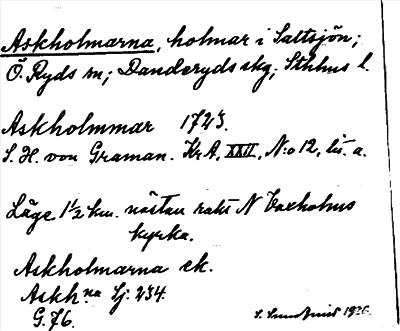 Askholmarna, holmar i Saltsjön;
Ö. Ryds sn; Danderyds skg; Sthlms l.
Askholmmar 1723.
S. H. von Graman. Kr A, XXII, N:o 12, lit. a.
Läge 1½ km. nästan rakt N Vaxholms
kyrka.
Askholmarna ek.
Askh.na Sj. 234.
G. 76.
1920.